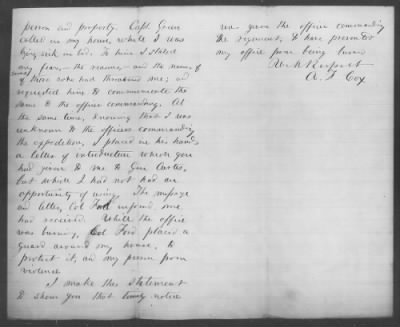 person and property. Capt. Green
called in my house, while I was
lying sick in bed. To him I stated
my fears, – the reasons – and the names of
some of those who had threatened me; and
requested him to communicate the
same to the officer commanding. At
the same time, knowing that I was
unknown to the officers commanding
the expedition, I placed in his hands
a letter of introduction which you
had given to me to Gen Curtis,
but which I had not had an
opportunity of using. The message
and letter, Col Ford informed me
had received. While the office
was burning, Col Ford placed a
guard around my house, to
protect it, and my person from
violence
I make this statement
to show you that timely notice
was given the officer commanding
the regiment, to have prevented
my office from being burned
Respect
A. F. Cox